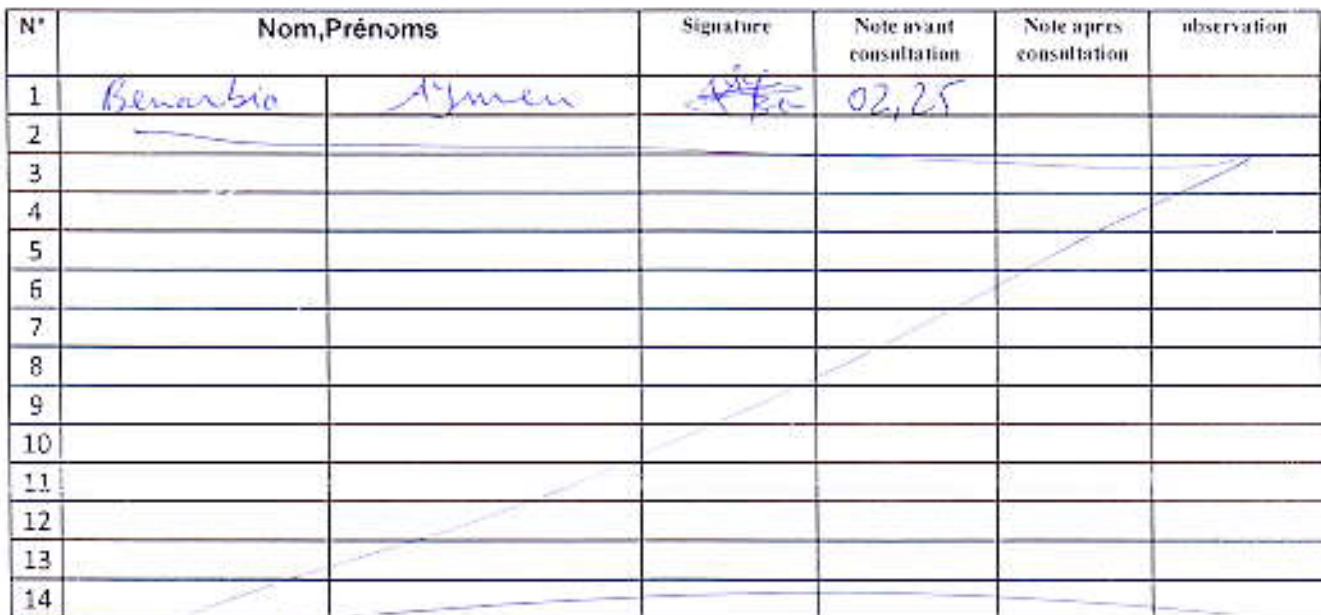 N° Nom,Prénoms Signature Note avant consultation Note apres consultation observation
1 Benarbia Aymen 02,25
2
3
4
5
6
7
8
9
10
11
12
13
14